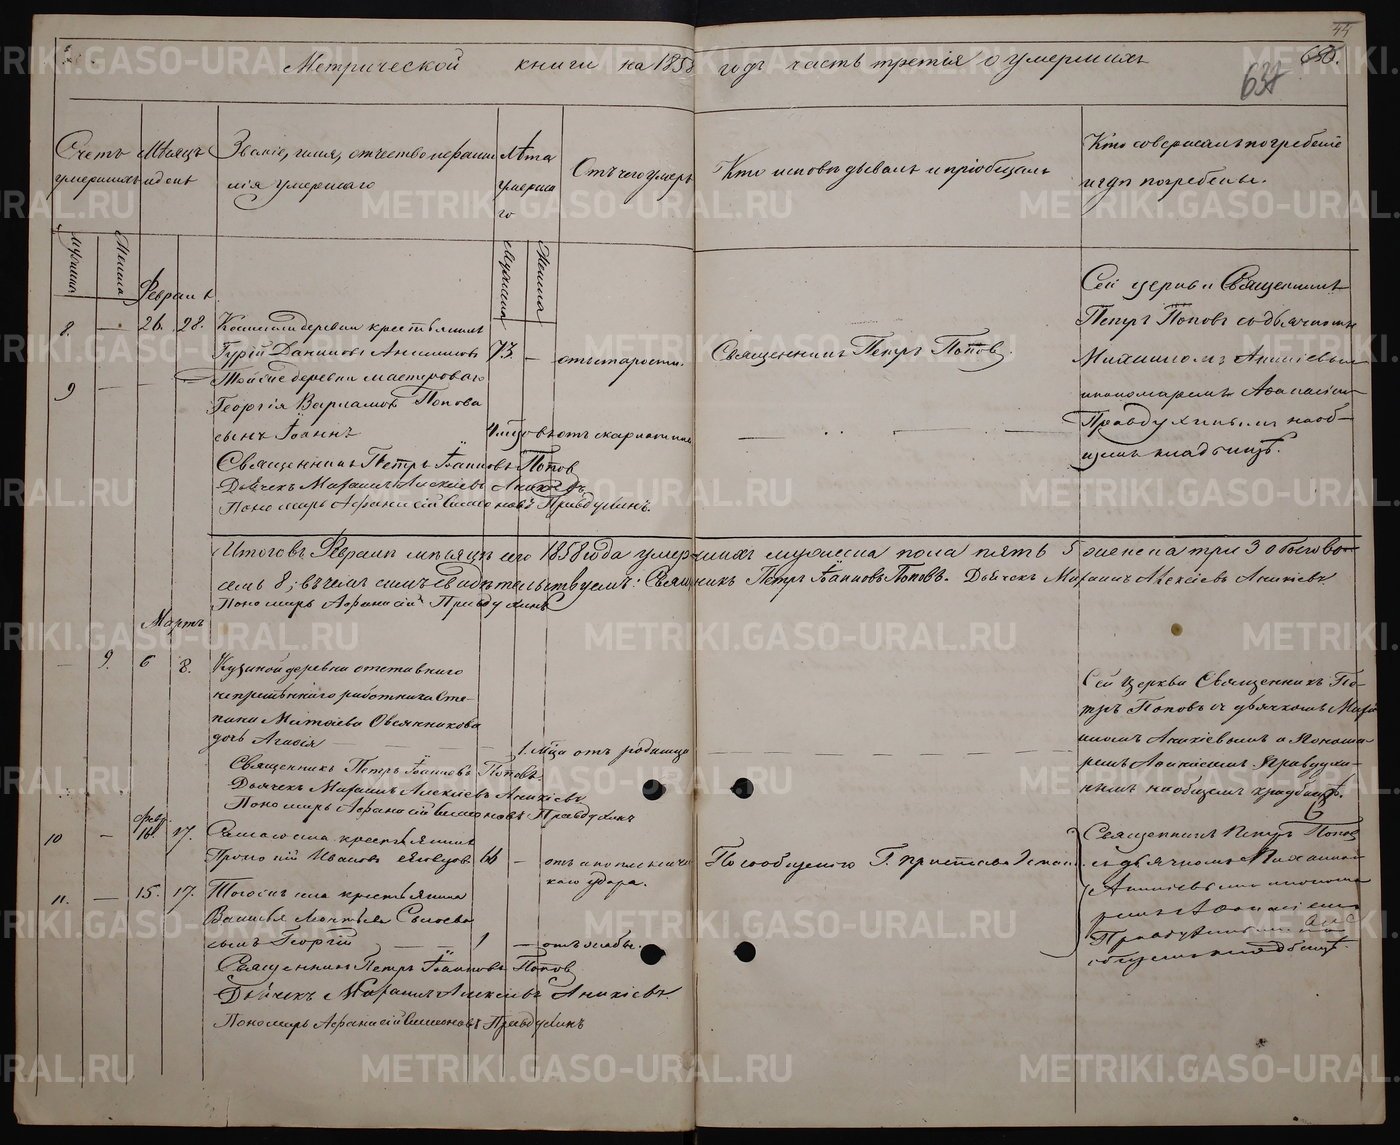 44
Метрической книги на 1858 годъ часть третія о умершихъ
637
Счетъ умершихъ
Мѣсяцъ и день
Званіе, имя, отчество и фамилія умершаго
Лѣта умершаго
Отъ чего умеръ
Кто исповѣдывалъ и пріобщалъ
Кто совершалъ погребеніе и гдѣ погребены.
Мужеска
Женска
Мужеска
Женска
Февраль
8. — 26. 28.
деревни крестьянинъ
Гурій Даниловъ 73 — отъ старости.
Священникъ Петръ Поповъ.
Сей церкви Священникъ
Петръ Поповъ съ дьячкомъ
Михаиломъ Аникіевымъ
пономаремъ Афанасіемъ
Правдухинымъ на об-
щемъ кладбищѣ.
9 — — —
Той же деревни мастероваго
Георгія Варламова Попова
сынъ Іоаннъ
отъ скарлатины
Священникъ Петръ Іоанновъ Поповъ
Дьячекъ Михаилъ Алексіевъ Аникіевъ
Пономарь Афанасій Симеоновъ Правдухинъ.
Итого въ Февралѣ мѣсяцѣ сего 1858 года умершихъ мужеска пола пять 5 женска три 3 обоего во-
семь 8; въ чемъ и свидѣтельствуемъ: Священникъ Петръ Іоанновъ Поповъ. Дьячекъ Михаилъ Алексіевъ Аникіевъ.
Пономарь Афанасій Правдухинъ
Мартъ
— 9. 6 8.
Кузиной деревни отставнаго
непремѣннаго работника Сте-
пана Матвѣева Овсянникова
дочь Агафія — — 1. мца отъ родимца
Сей Церкви Священникъ Пе-
тръ Поповъ съ дьячкомъ Миха-
иломъ Аникіевымъ и Понома-
ремъ Афанасіемъ Правдухи-
нымъ на общемъ кладбищѣ.
Священникъ Петръ Іоанновъ Поповъ
Дьячекъ Михаилъ Алексіевъ Аникіевъ
Пономарь Афанасій Симеоновъ Правдухинъ
Февр.
10 — 16 17.
села крестьянинъ
Прокопій Ивановъ 66 — отъ апоплексиче-
скаго удара.
По сообщенію Г. пристава
Священникъ Петръ Поповъ
съ дьячкомъ Михаиломъ
Аникіевымъ и понома-
ремъ Афанасіемъ
Правдухинымъ на
общемъ кладбищѣ.
11. — 15. 17.
Тогожъ села крестьянина
Василья
сынъ Георгій — 1 — отъ жабы.
Священникъ Петръ Іоанновъ Поповъ
Дьячекъ Михаилъ Алексіевъ Аникіевъ.
Пономарь Афанасій Симеоновъ Правдухинъ
METRIKI.GASO-URAL.RU